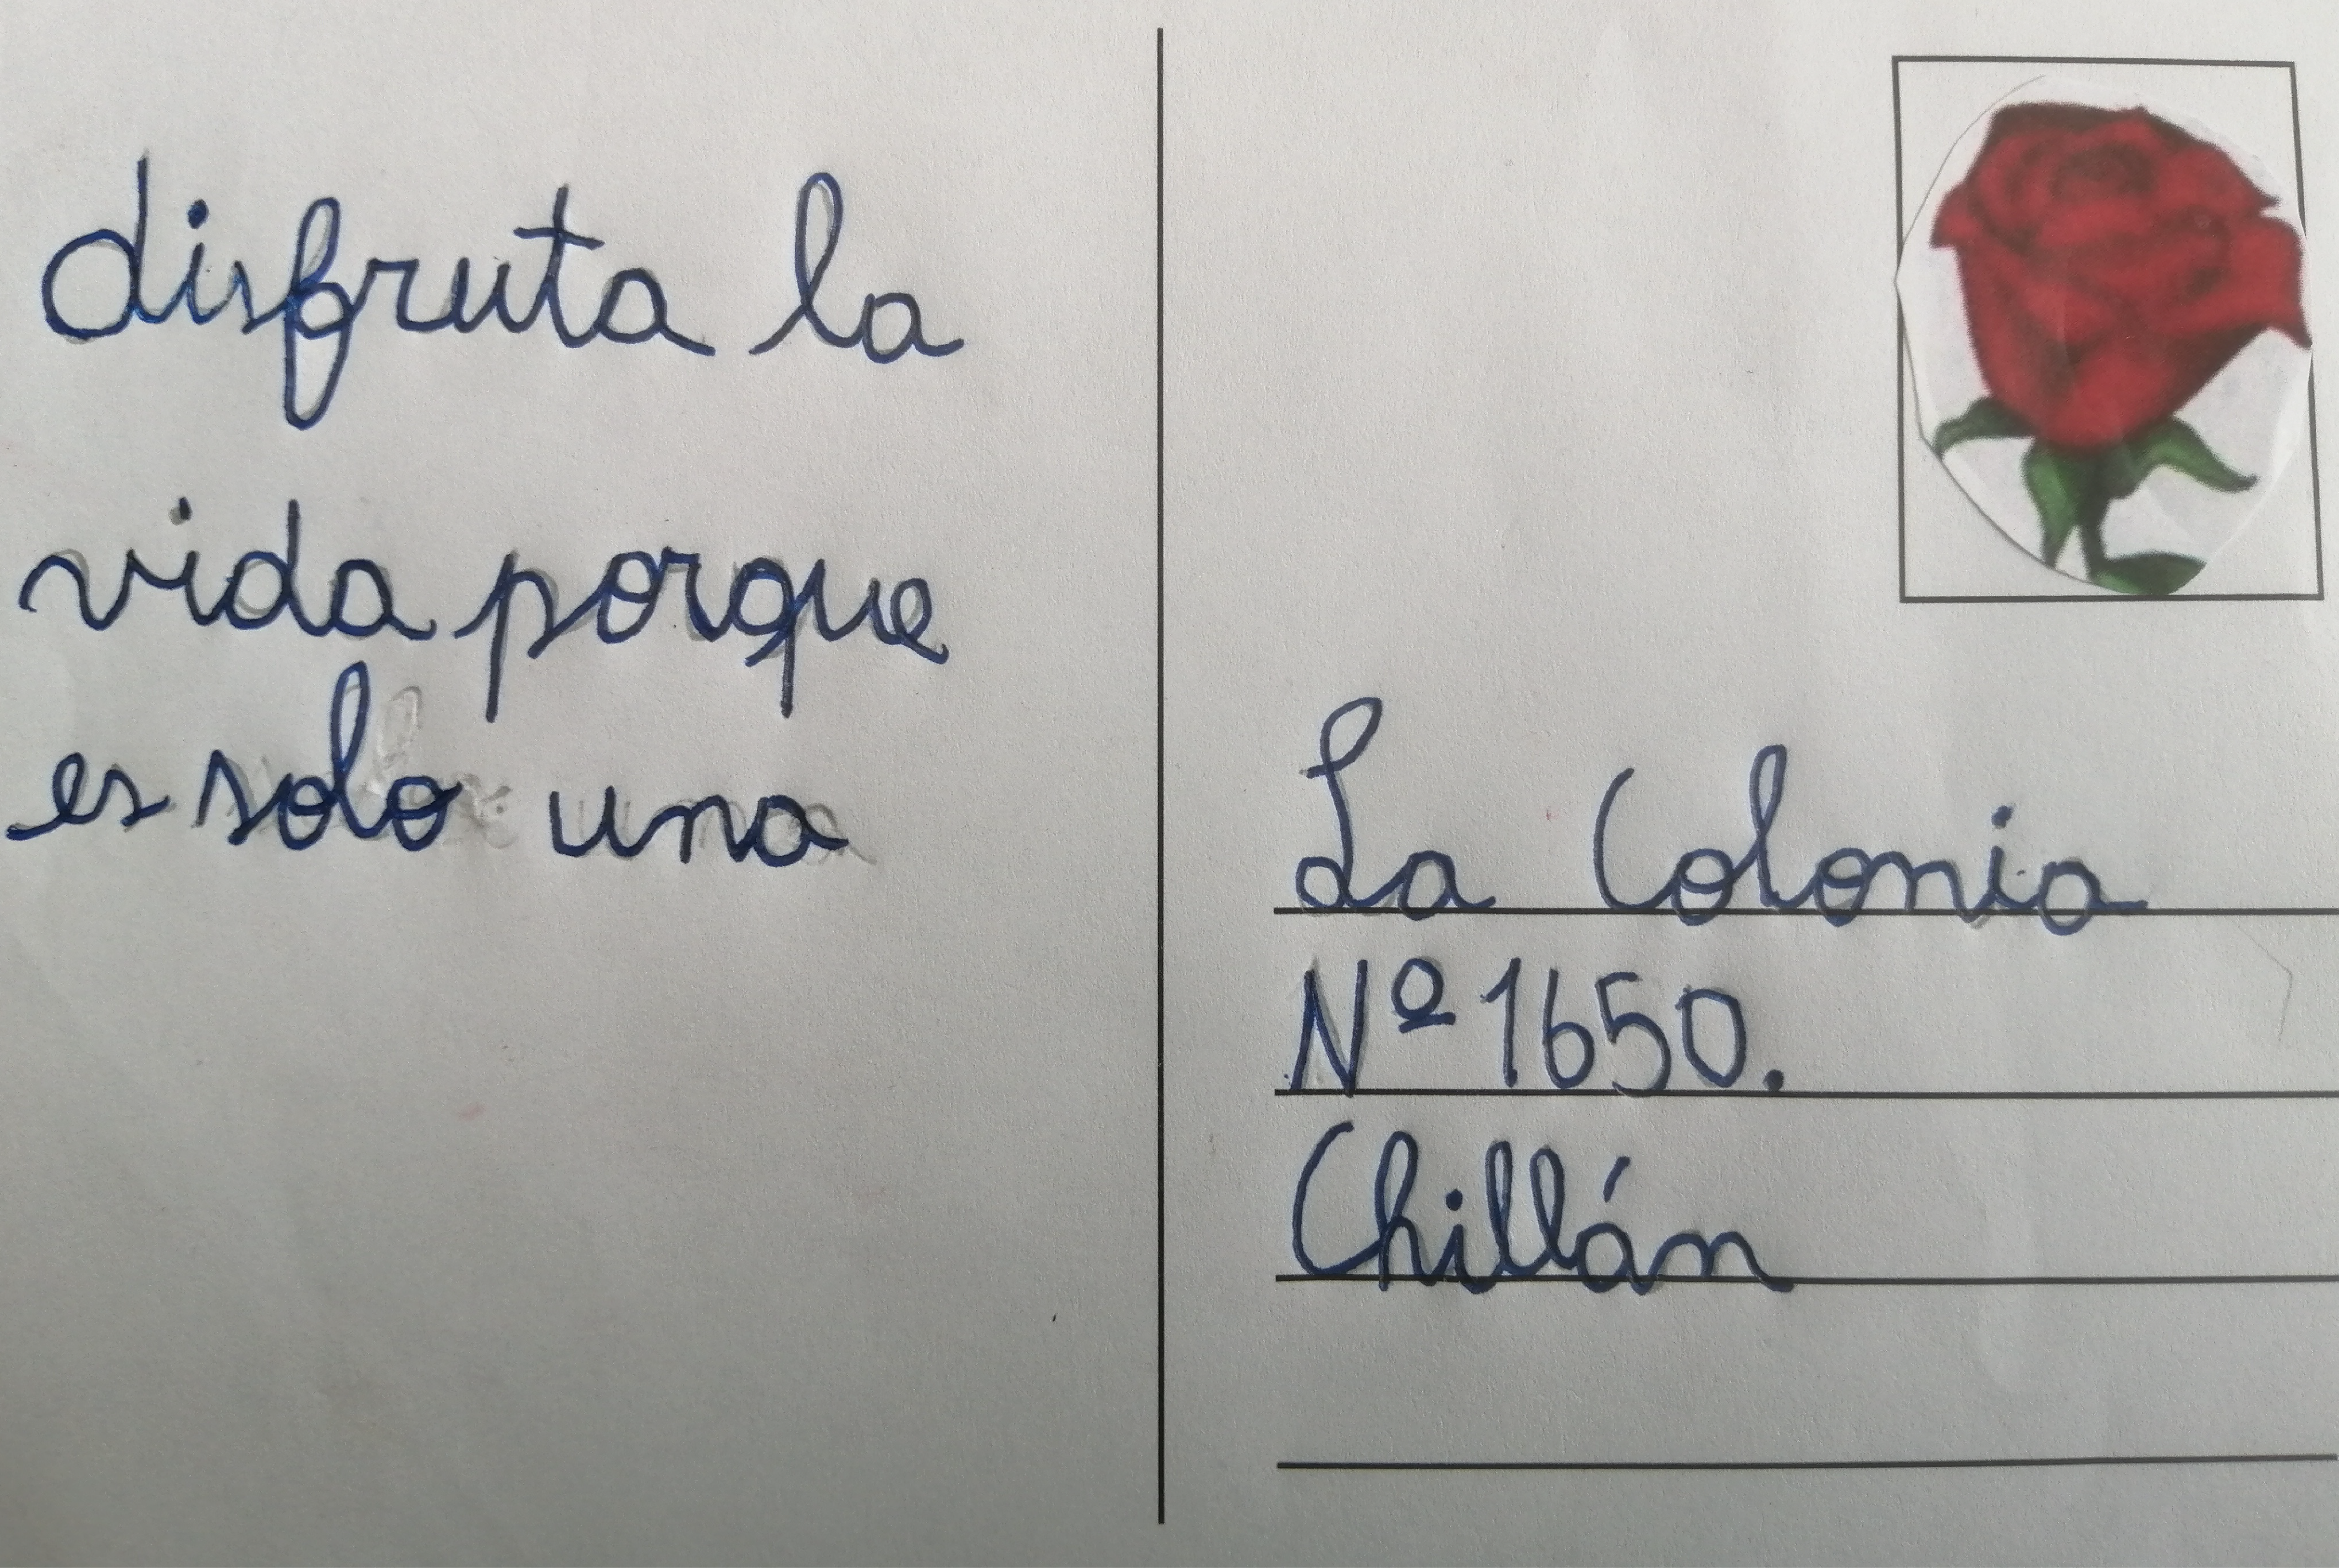 disfruta la
vida porque
es solo una
La Colonia
Nº 1650.
Chillán